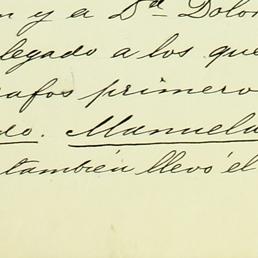 n y a Dª Dolor
legado a los que
afos primero
do. Manuela
también llevó el